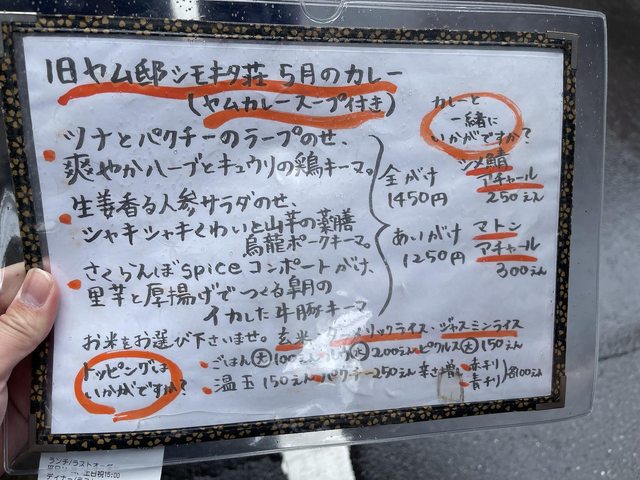 旧ヤム邸シモキタ荘 5月のカレー
(ヤムカレースープ付き)
ツナとパクチーのラープのせ、
爽やかハーブとキュウリの鶏キーマ。
生姜香る人参サラダのせ、
シャキシャキくわいと山芋の薬膳
烏龍ポークキーマ。
さくらんぼspiceコンポートがけ、
里芋と厚揚げでつくる皐月の
イカした牛豚キーマ
全がけ
1450円
あいがけ
1250円
カレーと
一緒に
いかがですか?
ツメ鯖
アチャール
250えん
マトン
アチャール
300えん
お米をお選び下さいませ。玄米・ターメリックライス・ジャスミンライス
トッピングは
いかがですか?
・ごはん大100えん 大200えん ピクルス大150えん
・温玉150えん パクチー250えん 辛さ増し 赤チリ 青チリ 各100えん
ランチ/ラストオーダー
土日祝15:00